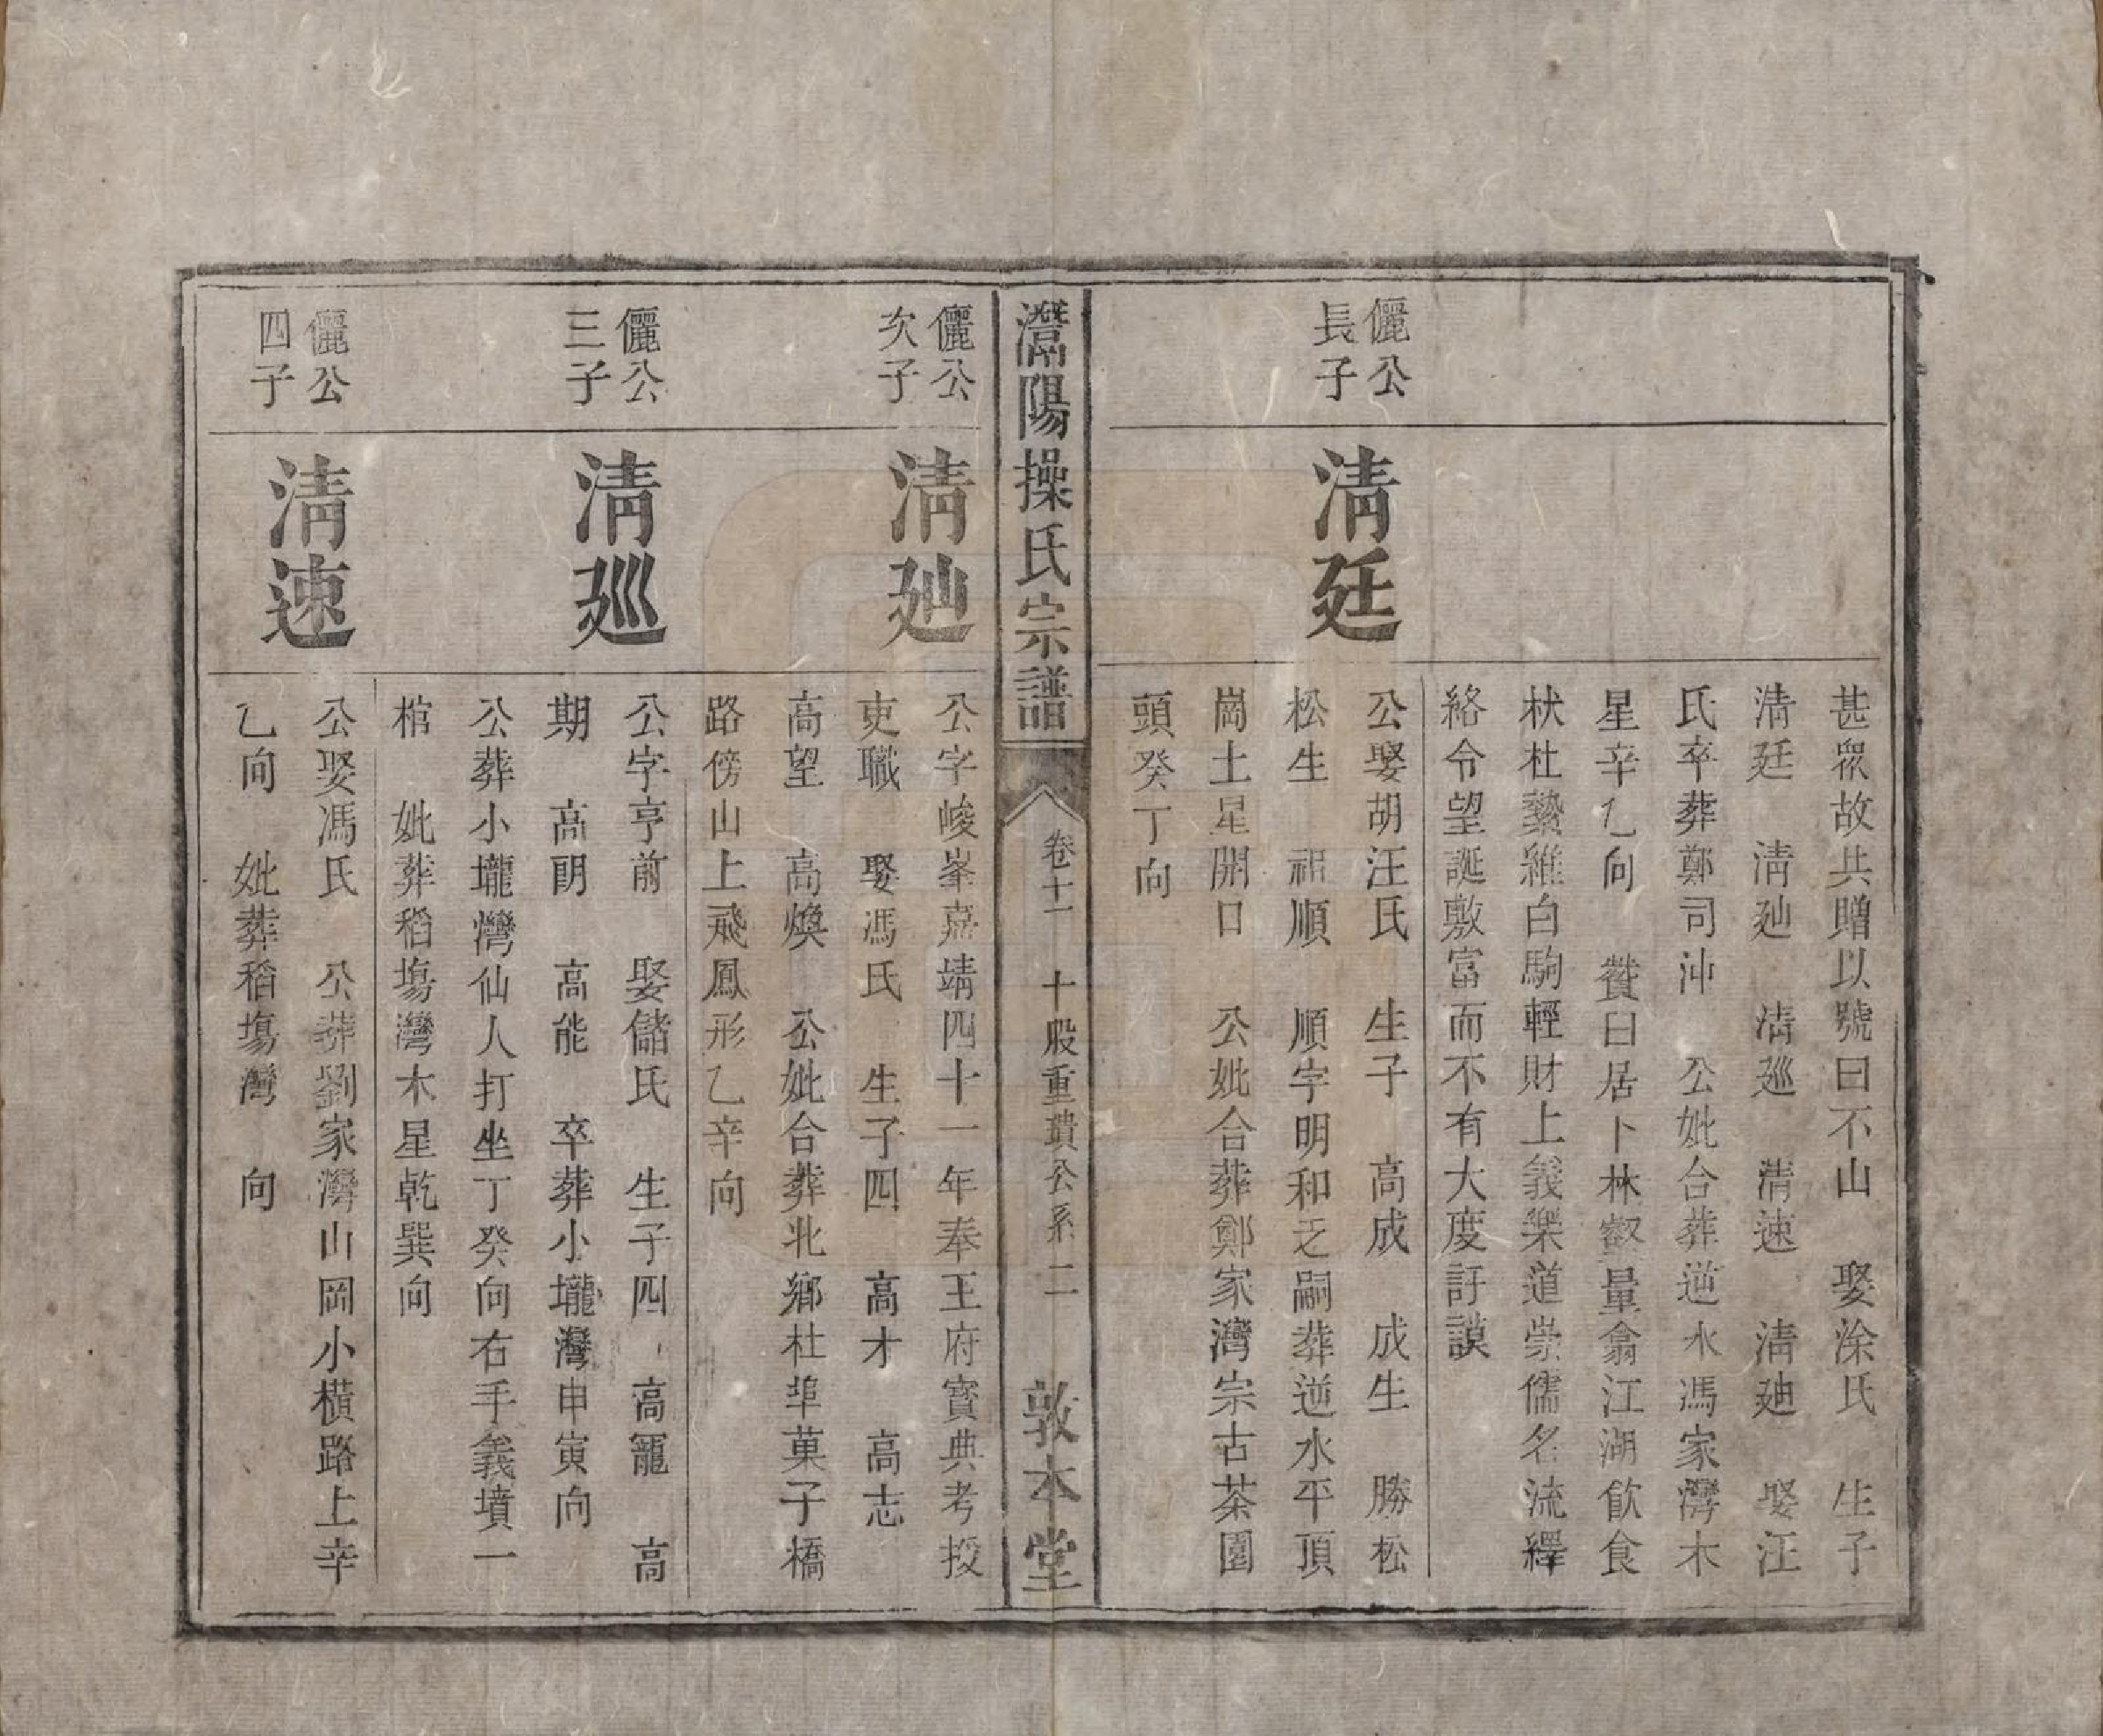 甚衆故共贈以號曰不山　娶涂氏　生子
淸廷　淸𨒂　淸廵　淸速　淸廸　娶汪
氏卒葬鄭司沖　公妣合葬逆水馮家灣木
星辛乙向　贊曰居卜林叡量翕江湖飮食
杕杜蓺維白駒輕財上義樂道崇儒名流繹
絡令望誕敷富而不有大度訏謨
儷公
長子
淸廷
公娶胡汪氏　生子　高成　成生　勝松
松生　祖順　順字明和乏嗣葬逆水平頂
崗土星開口　公妣合葬鄭家灣宗古茶園
頭癸丁向
灊陽操氏宗譜　卷十一　十股重瓚公系　二　敦本堂
儷公
次子
淸𨒂
公字峻峯嘉靖四十一年奉王府寶典考授
吏職　娶馮氏　生子四　高才　高志
高望　高煥　公妣合葬北鄉杜埠菓子橋
路傍山上飛鳳形乙辛向
儷公
三子
淸廵
公字亨前　娶儲氏　生子四　高寵　高
期　高朗　高能　卒葬小壠灣申寅向
公葬小壠灣仙人打坐丁癸向右手義墳一
棺　妣葬稻塲灣木星乾巽向
儷公
四子
淸速
公娶馮氏　公葬劉家灣山岡小橫路上辛
乙向　妣葬稻塲灣　向